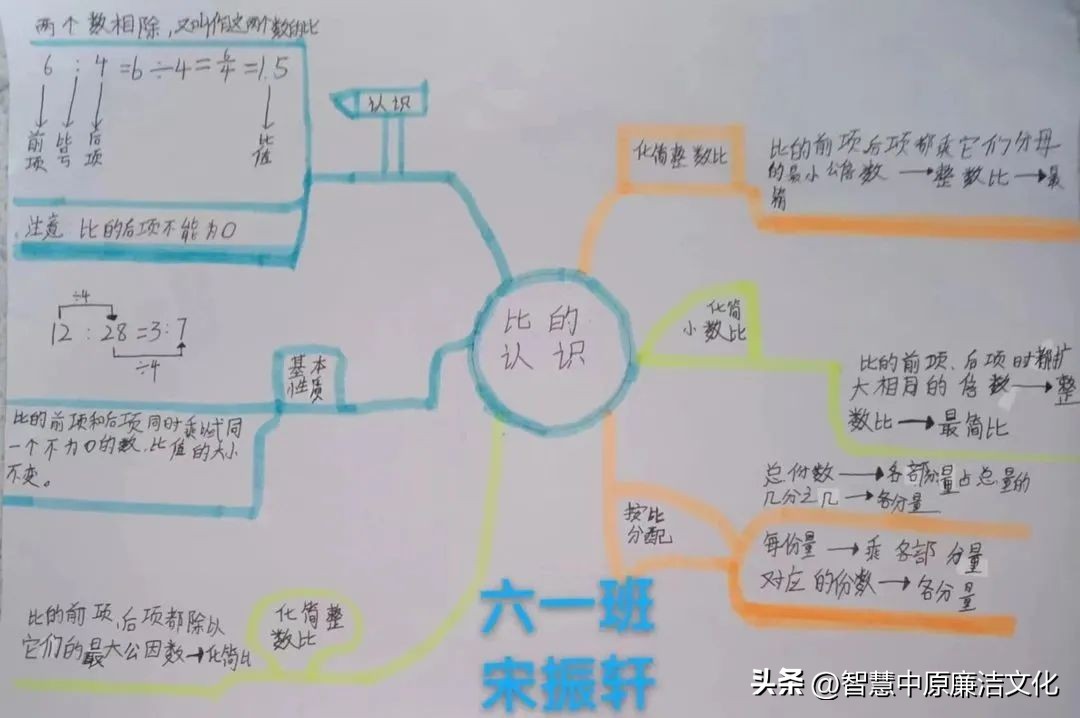 两个数相除,又叫作这两个数的比
6 : 4 = 6 ÷ 4 = 6/4 = 1.5
前项
后项
比值
注意 比的后项不能为0
认识
÷4
12 : 28 = 3 : 7
÷4
基本
性质
比的前项和后项同时乘或
一个不为0的数,比值的大小
不变。
比的前项、后项都除以
它们的最大公因数→化简比
化简整
数比
比的
认识
化简整数比
比的前项后项都乘它们分母
的最小公倍数→整数比→最
简
化简
小数比
比的前项、后项同时都扩
大相同的倍数→整
数比→最简比
按比
分配
总份数→各部分量占总量的
几分之几→各分量
每份量→乘各部分量
对应的份数→各分量
六一班
宋振轩
头条 @智慧中原廉洁文化